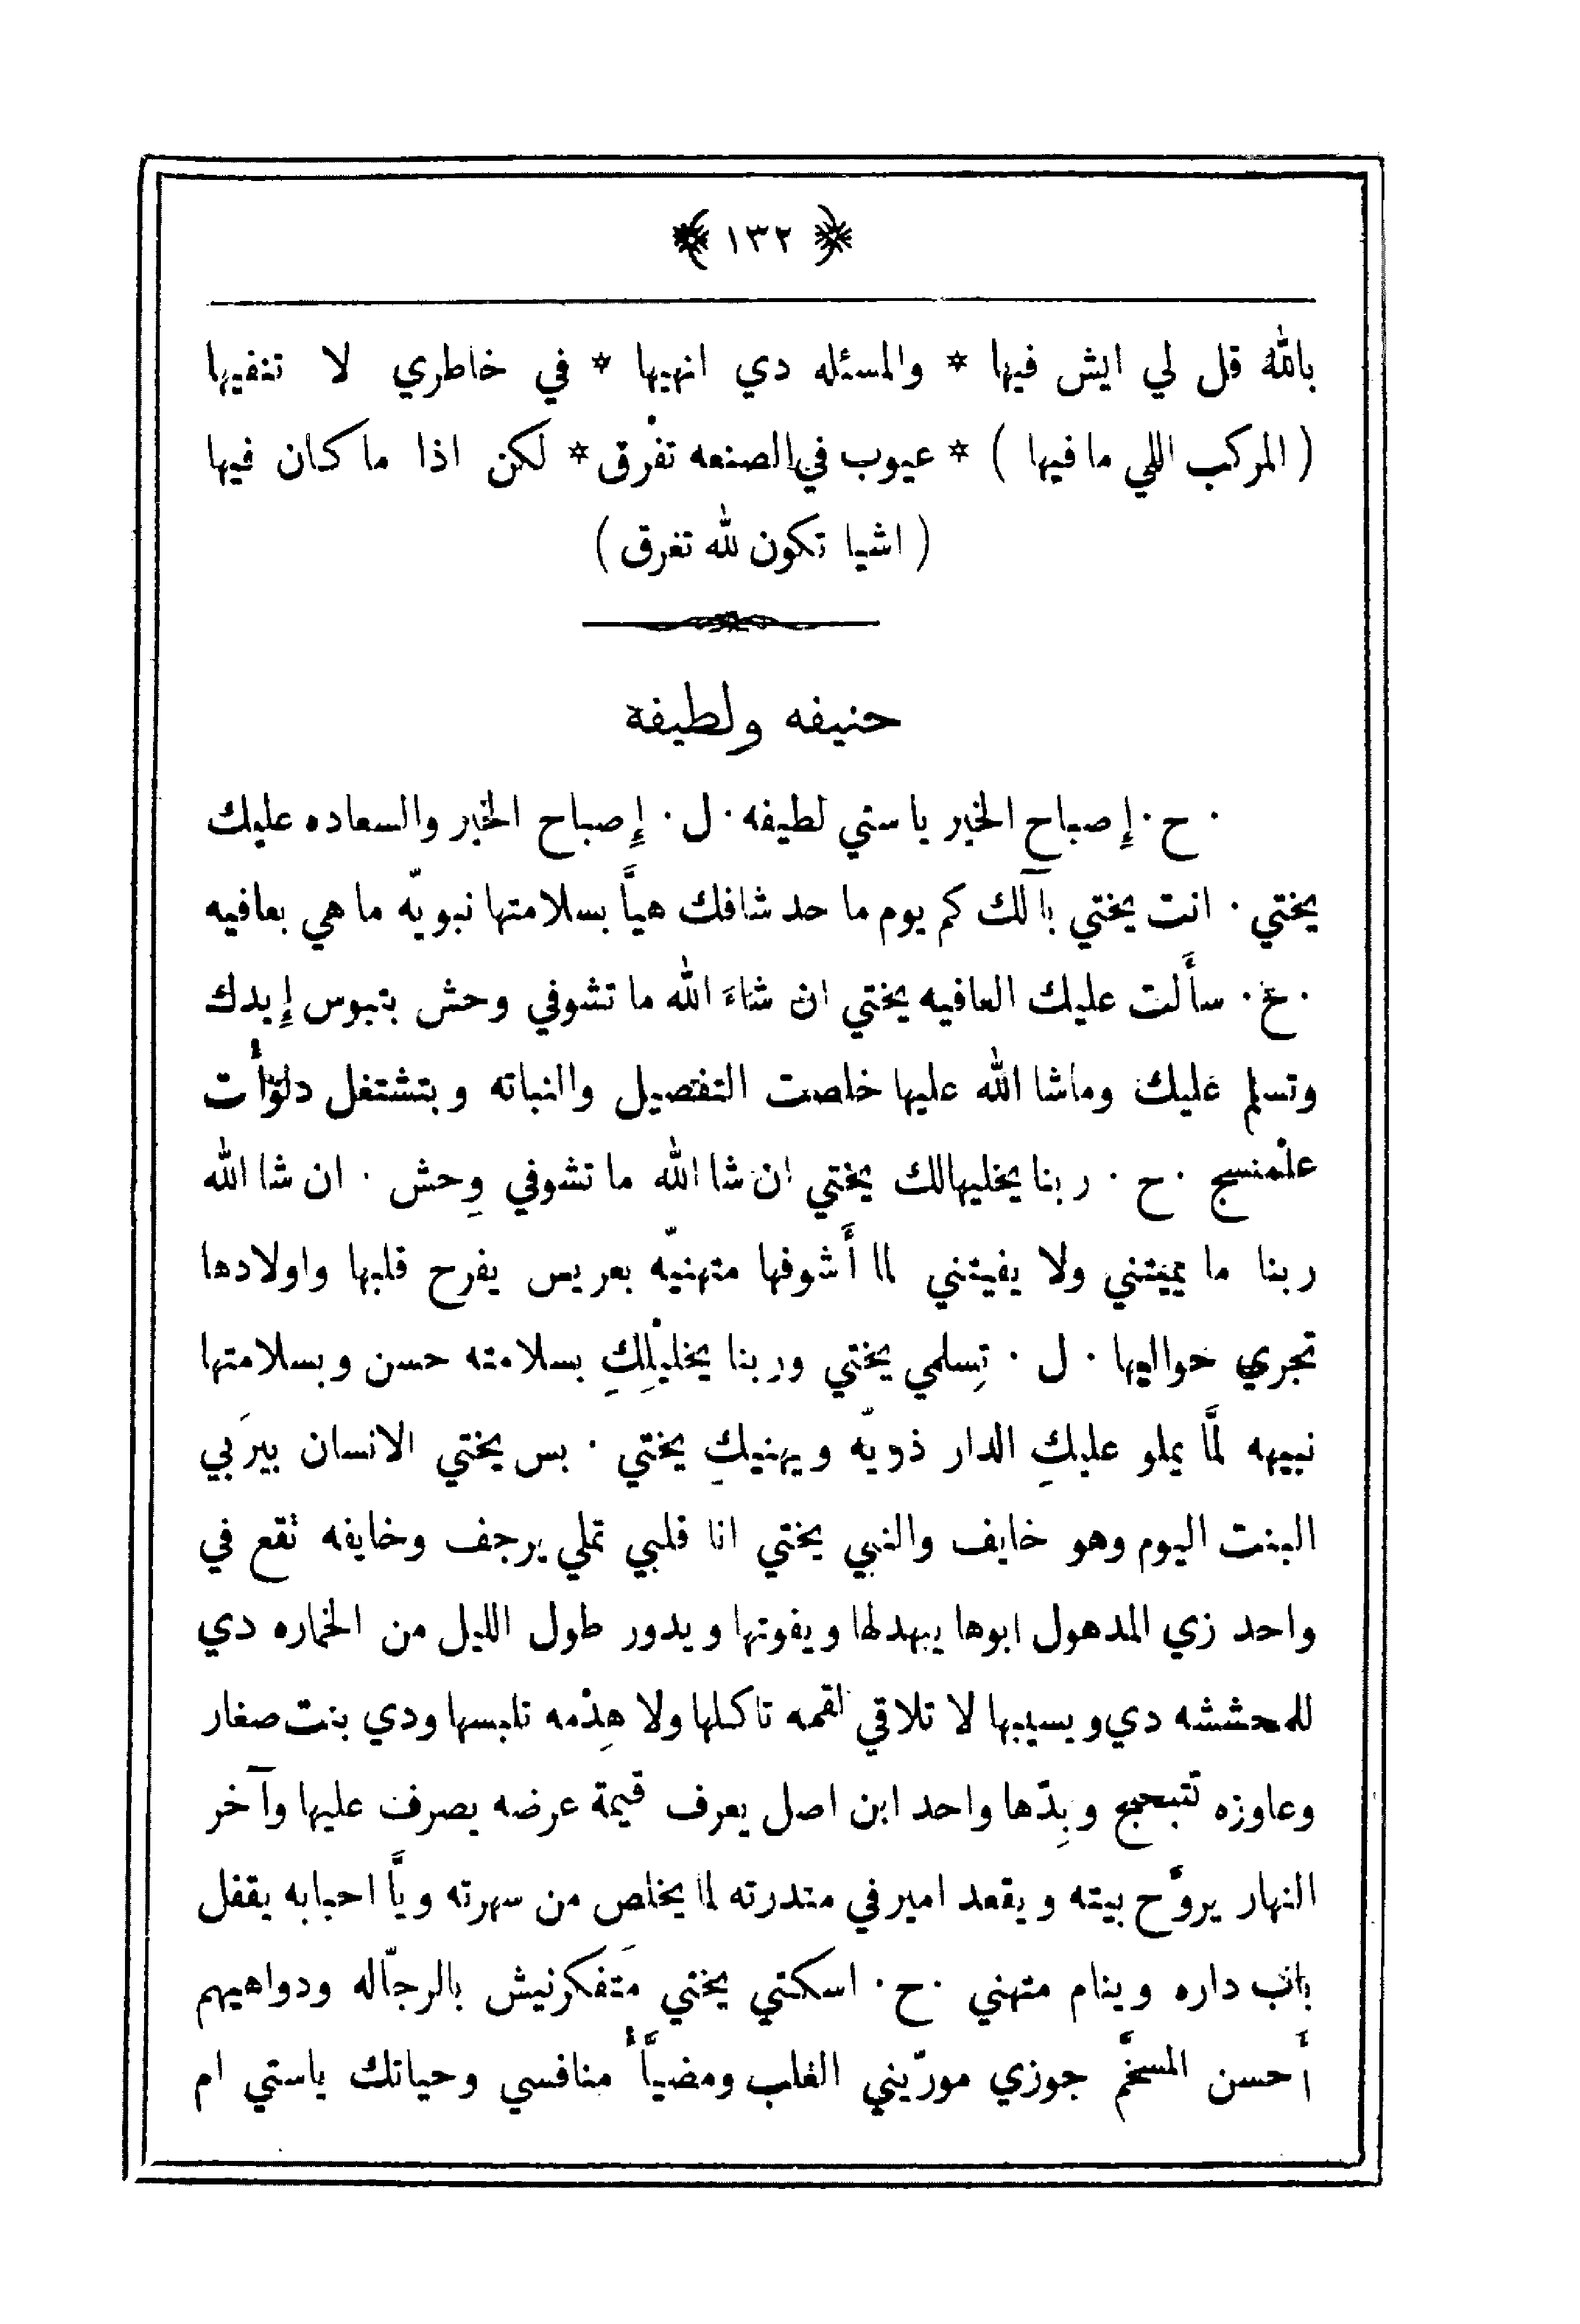 ١٣٢
بالله قل لي ايش فيها * والمسئله دي انهيها * في خاطري لا تنفيها
( المركب اللي ما فيها ) * عيوب في الصنعه تفْرق * لكن اذا ما كان فيها
( اشيا تكون لله تغرق )
حنيفه ولطيفة
· ح · إصباح الخير يا ستي لطيفه · ل · إصباح الخير والسعاده عليك
يختي · انت يختي بآلك كم يوم ما حد شافك هيأَّ بسلامتها نبويّه ما هي بعافيه
· خ · سأَلت عليك العافيه يختي ان شاءَ الله ما تشوفي وحش بتبوس إيدك
وتسلم عليك وماشا الله عليها خلصت التفصيل والنباته وبتشتغل دلوْأت
علْمنسج · ح · ربنا يخليهالك يختي ان شا الله ما تشوفي وِحش · ان شا الله
ربنا ما يميتني ولا يفيتني لما أَشوفها متهنيّه بعريس يفرح قلبها واولادها
تجري حواليها · ل · تِسلمي يختي وربنا يخليْلِكِ بسلامته حسن وبسلامتها
نبيهه لمَّا يملو عليكِ الدار ذويّه ويهنيكِ يختي · بس يختي الانسان بيرَبي
البنت اليوم وهو خايف والنبي يختي انا قلبي تملي يرجف وخايفه تقع في
واحد زي المدهول ابوها يبهدلها ويفوتها ويدور طول الليل من الخماره دي
للمحششه دي ويسيبها لا تلاقي لقمه تاكلها ولا هِدْمه تلبسها ودي بنت صغار
وعاوزه تتبحبح وبِدّها واحد ابن اصل يعرف قيمة عرضه يصرف عليها وآخر
النهار يروَّح بيته ويقعد امير في مندرته لما يخلص من سهرته ويأَّ احبابه يقفل
باب داره وينام متهني · ح · اسكتي يختي مَتفكرنيش بالرجّاله ودواهيهم
أَحسن المسخَّم جوزي مورّيني الغلب ومضيَّأْ منافسي وحياتك ياستي ام